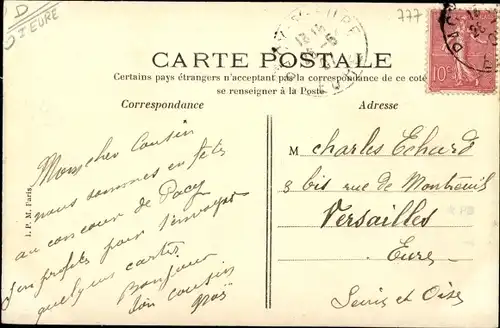 D
EURE
777
CARTE POSTALE
Certains pays étrangers n'acceptant pas la correspondance de ce coté
se renseigner à la Poste
Correspondance
Adresse
Mon cher Cousin
nous sommes en fête
au concour de Pacy
j'en profite pour t'envoyer
quelques cartes
Bonjour
ton cousin
M Charles Echard
8 bis rue de Montreuil
Versailles
Eure
Seine et Oise
I. P. M. Paris
10